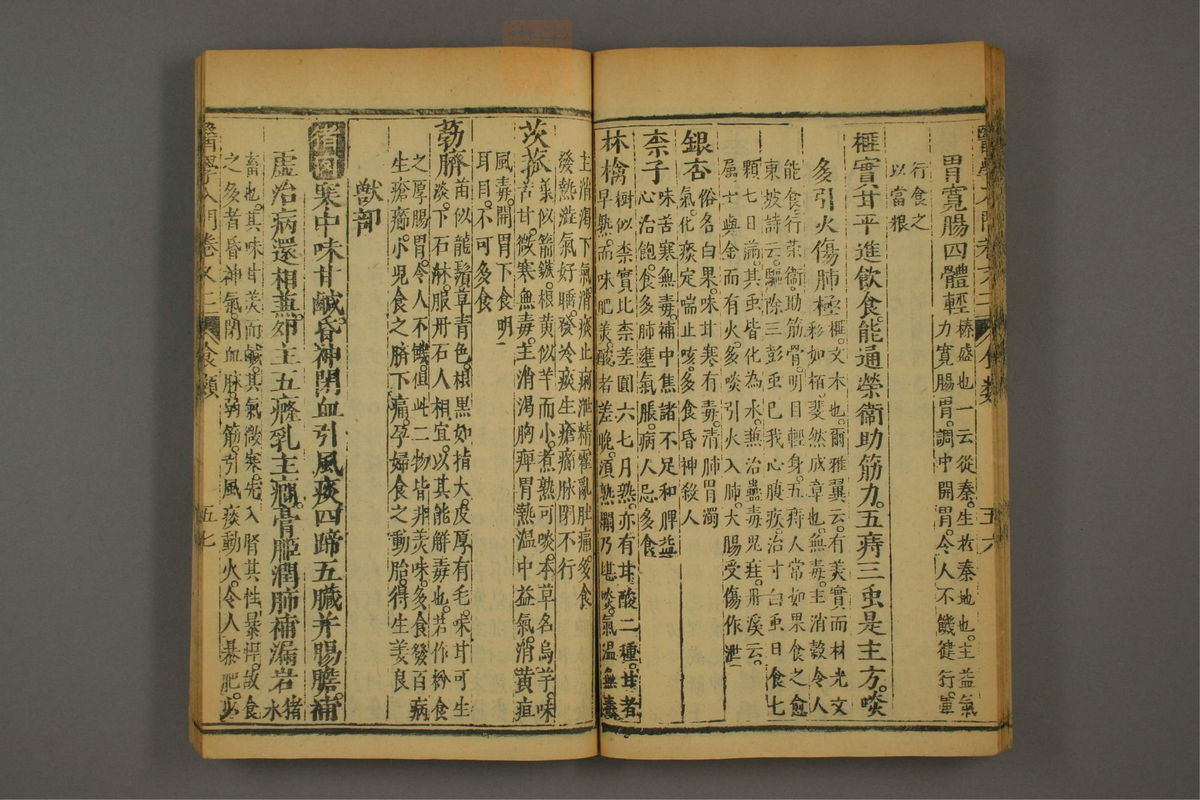 醫學入門卷之二 食類 五六
胃寬腸四體輕榛盛也一云從秦生於秦地也主益氣
力寬腸胃調中開胃令人不饑健行軍
行食之
以當粮
榧實甘平進飲食能通榮衞助筋力五痔三虫是主方啖
多引火傷肺極榧文木也爾雅翼云有美實而材光文
彩如栢斐然成章也無毒主消穀令人
能食行荣衞助筋骨明目輕身五痔人常如果食之愈
東坡詩云驅除三彭虫已我心腹疾治寸白虫日食七
顆七日滿其虫皆化為水兼治蠱毒鬼疰丹溪云
属土與金而有火多啖引火入肺大腸受傷作泄
銀杏俗名白果味甘寒有毒清肺胃濁
氣化痰定喘止咳多食昏神殺人
柰子味苦寒無毒補中焦諸不足和脾益
心治飽食多肺壅氣脹病人忌多食
林檎樹似柰實比柰差圓六七月熟亦有甘酸二種甘者
早熟而味肥美酸者差晚須熟爛乃堪啖氣温無毒
主消渴下氣消痰止痢泄精霍亂肚痛多食
發熱澁氣好睡發冷痰生瘡癤脉閉不行
茨菰葉似箭鏃根黄似芋而小煮熟可啖本草名烏芋味
苦甘微寒無毒主消渴胸痹胃熱温中益氣消黄疸
風毒開胃下食明
耳目不可多食
葧臍苗似龍鬚草青色根黑如指大皮厚有毛味甘可生
啖下石淋服丹石人相宜以其能解毒也若作粉食
之厚腸胃令人不饑但此二物皆非美味多食發百病
生瘡癤小兒食之臍下痛孕婦食之動胎得生姜良
獸部
猪肉寒中味甘鹹昏神閉血引風痰四蹄五臟并腸膽補
虛治病還相兼卵主五癃乳主癎骨髓潤肺補漏岩猪
水
畜也其味甘美而鹹其氣微寒先入腎其性暴悍故食
之多者昏神氣閉血脉弱筋引風痰動火令人暴肥以
醫學入門卷之二 食類 五七